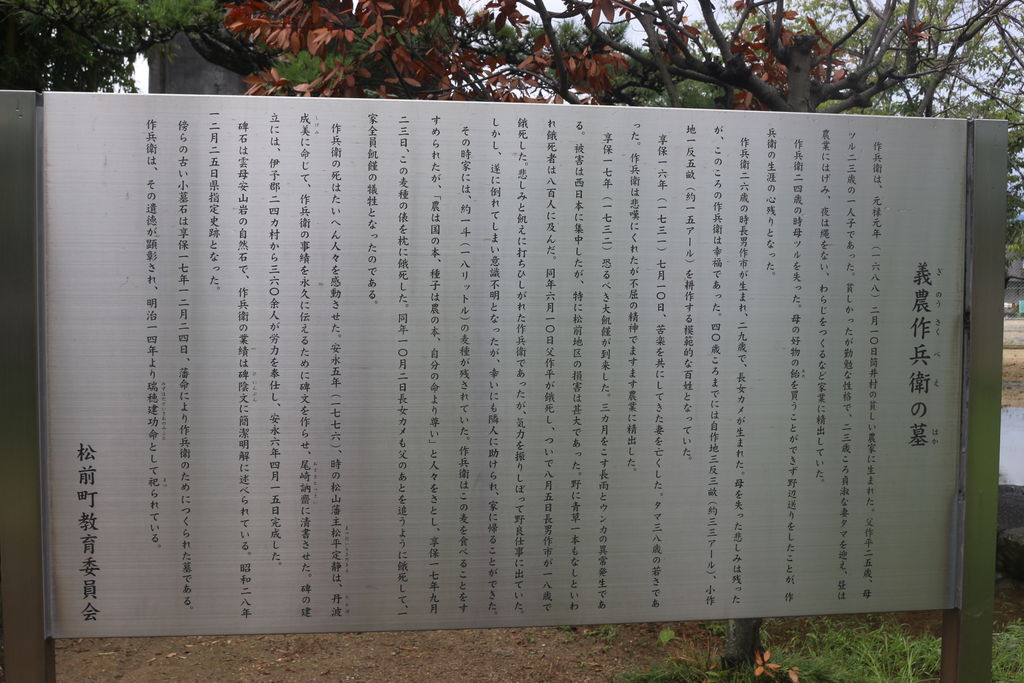 義農作兵衛の墓
作兵衛は、元禄元年（一六八八）二月一〇日筒井村の貧しい農家に生まれた。父作平二五歳、母
ツル二三歳の一人子であった。貧しかったが勤勉な性格で、二三歳ころ貞淑な妻タマを迎え、昼は
農業にはげみ、夜は縄をない、わらじをつくるなど家業に精出していた。
作兵衛二四歳の時母ツルを失った。母の好物の飴を買うことができず野辺送りをしたことが、作
兵衛の生涯の心残りとなった。
作兵衛二六歳の時長男作市が生まれ、二九歳で、長女カメが生まれた。母を失った悲しみは残った
が、このころの作兵衛は幸福であった。四〇歳ころまでには自作地三反三畝（約三三アール）、小作
地一反五畝（約一五アール）を耕作する模範的な百姓となっていた。
享保一六年（一七三一）七月一〇日、苦楽を共にしてきた妻を亡くした。タマ三八歳の若さであ
った。作兵衛は悲嘆にくれたが不屈の精神でますます農業に精出した。
享保一七年（一七三二）恐るべき大飢饉が到来した。三カ月をこす長雨とウンカの異常発生であ
る。被害は西日本に集中したが、特に松前地区の損害は甚大であった。野に青草一本もなしといわ
れ餓死者は八百人に及んだ。同年六月一〇日父作平が餓死し、ついで八月五日長男作市が一八歳で
餓死した。悲しみと飢えに打ちひしがれた作兵衛であったが、気力を振りしぼって野良仕事に出ていた。
しかし、遂に倒れてしまい意識不明となったが、幸いにも隣人に助けられ、家に帰ることができた。
その時家には、約一斗（一八リットル）の麦種が残されていた。作兵衛はこの麦を食べることをす
すめられたが、「農は国の本、種子は農の本、自分の命より尊い」と人々をさとし、享保一七年九月
二三日、この麦種の俵を枕に餓死した。同年一〇月二日長女カメも父のあとを追うように餓死して、一
家全員飢饉の犠牲となったのである。
作兵衛の死はたいへん人々を感動させた。安永五年（一七七六）、時の松山藩主松平定静は、丹波
成美に命して、作兵衛の事績を永久に伝えるために碑文を作らせ、尾崎訥齋に清書させた。碑の建
立には、伊予郡二四カ村から三六〇余人が労力を奉仕し、安永六年四月一五日完成した。
碑石は雲母安山岩の自然石で、作兵衛の業績は碑陰文に簡潔明解に述べられている。昭和二八年
一二月二五日県指定史跡となった。
傍らの古い小墓石は享保一七年一二月二四日、藩命により作兵衛のためにつくられた墓である。
作兵衛は、その遺徳が顕彰され、明治一四年より瑞穂建功命として祀られている。
松前町教育委員会